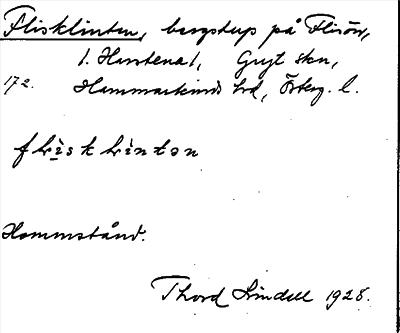 Flisklinten, bergstup på Flisön,
(. Harstena), Gryt skn,
172. Hammarkinds hd, Österg. l.
fliskklintən
Hommstånd.
Thord Lindell 1928.